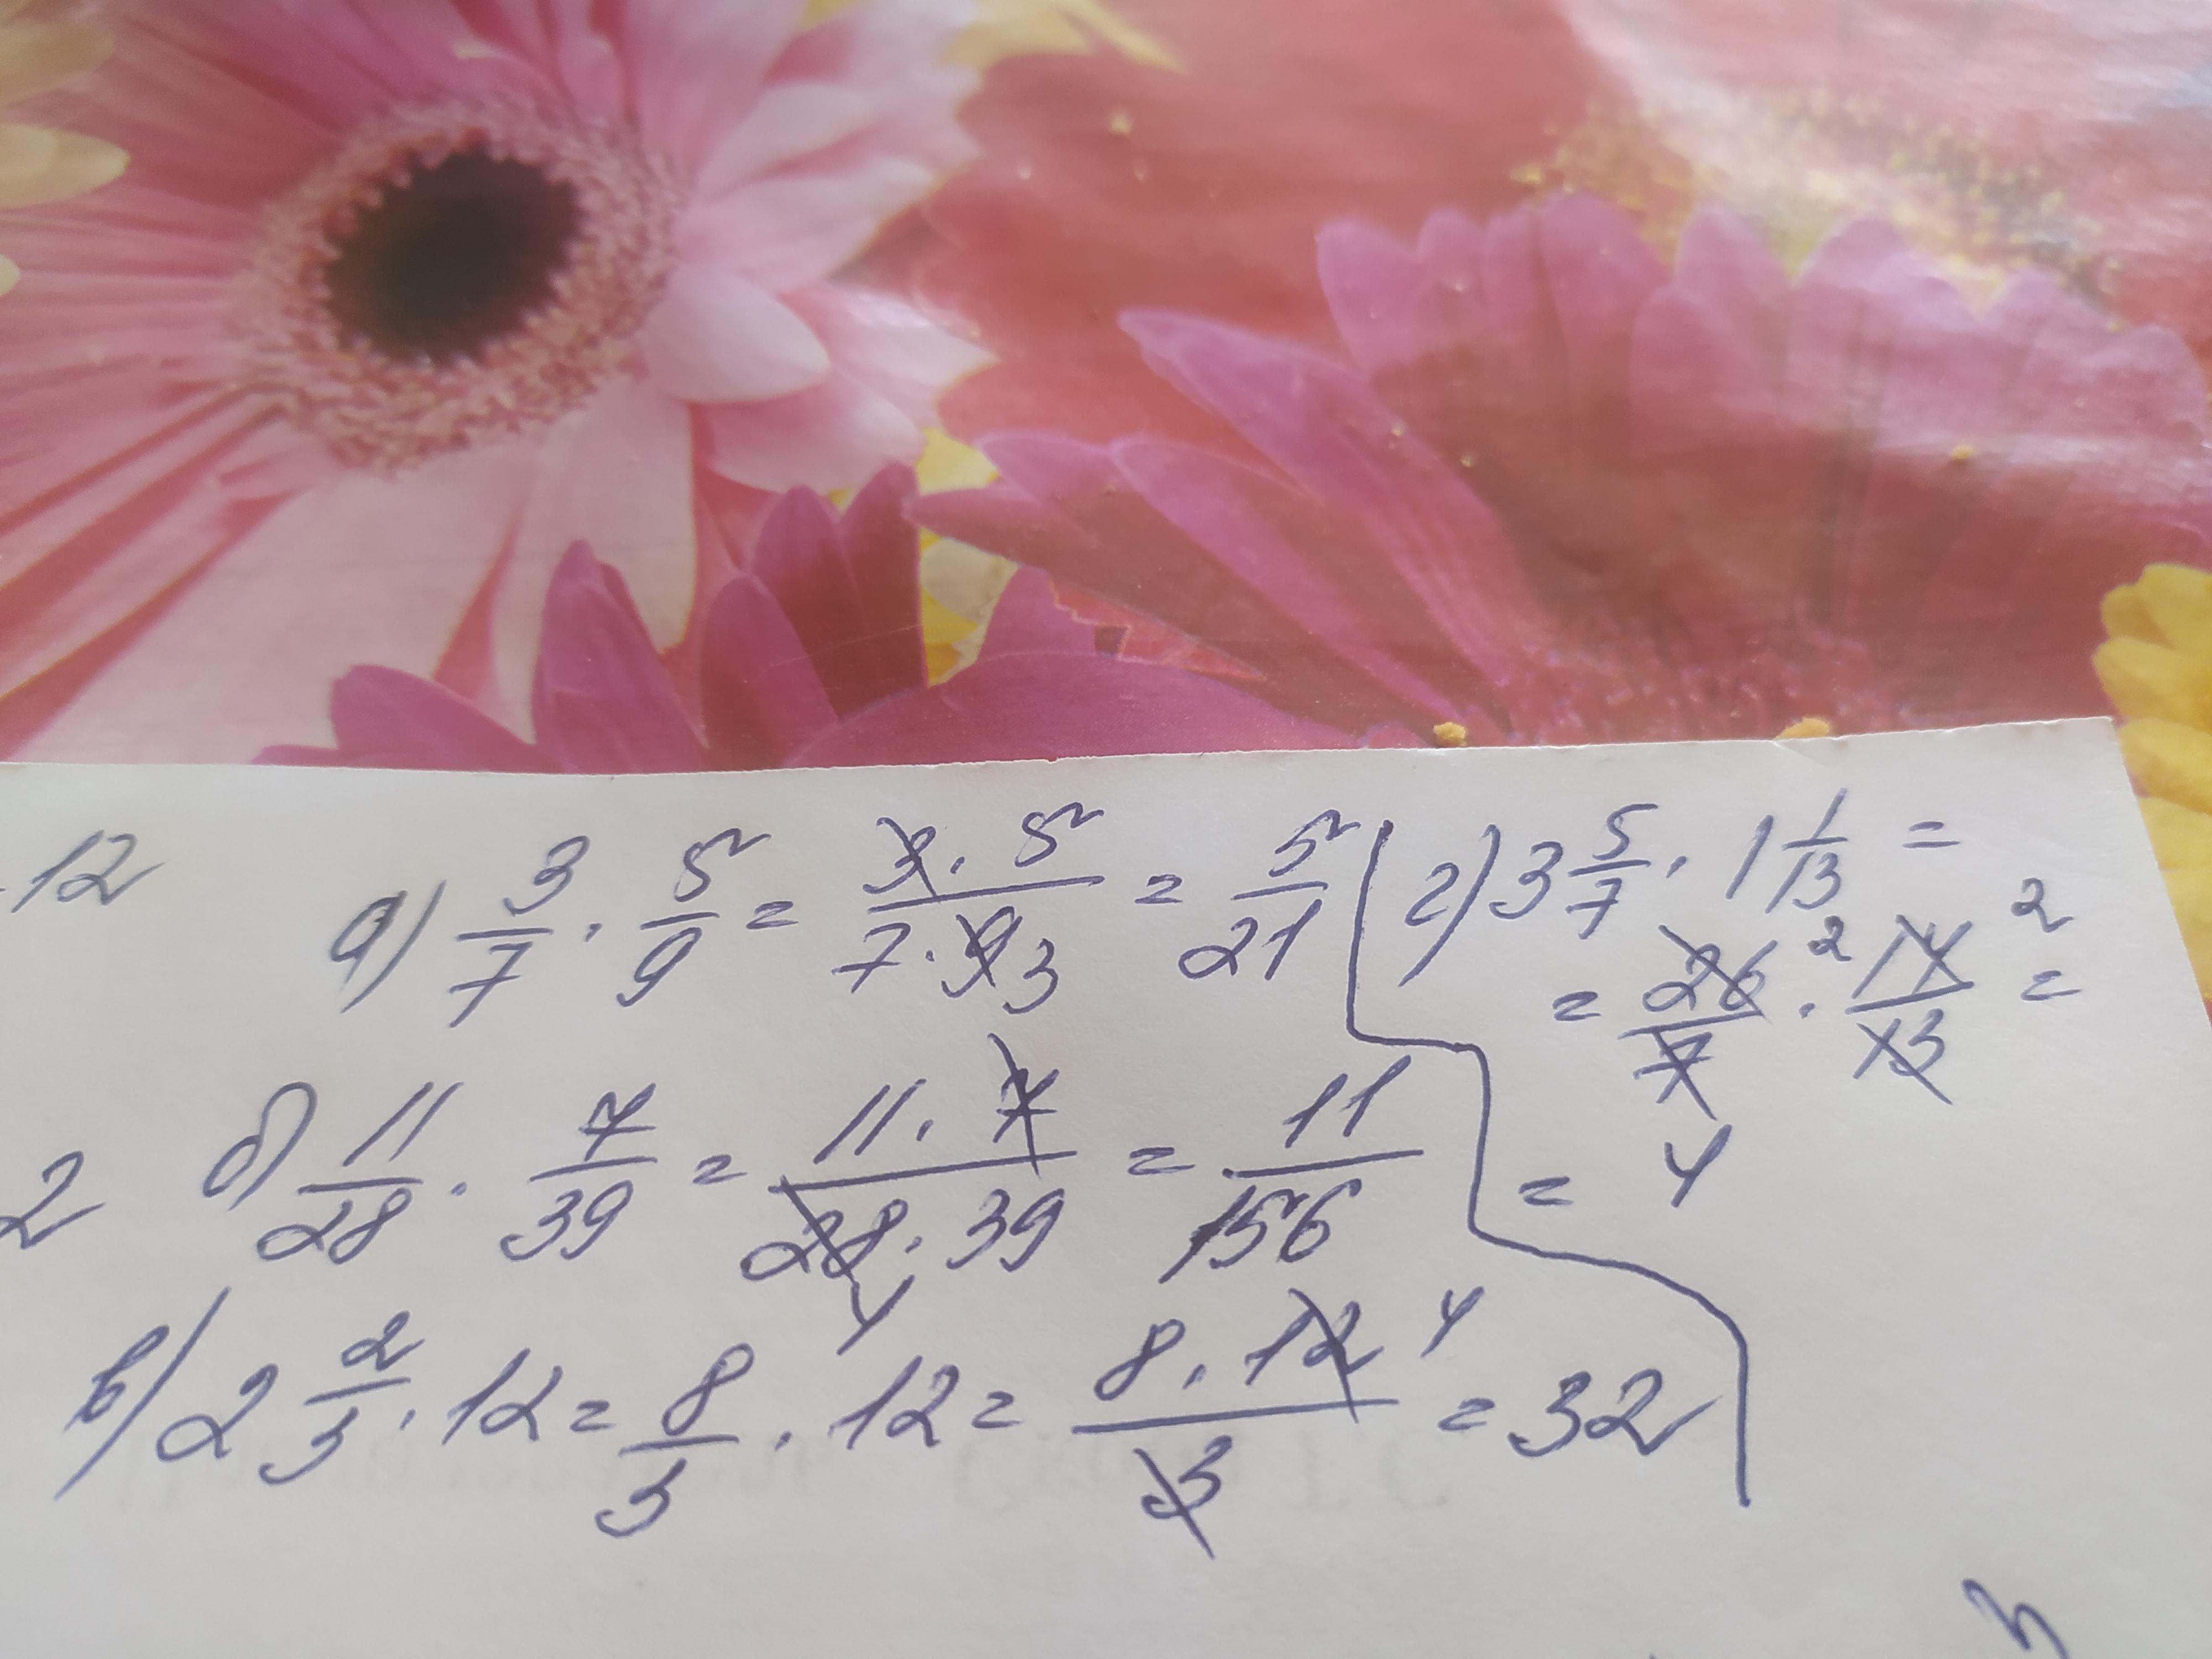 12
а) 3/7 · 5/9 = 3 · 5 / 7 · 9 3 = 5/21
г) 3 5/7 · 1 1/13 =
= 26/7 2 · 14/13 2 =
= 4
2
б) 11/28 · 7/39 = 11 · 7 / 28 4 · 39 = 11/156
в) 2 2/3 · 12 = 8/3 · 12 = 8 · 12 4 / 3 = 32